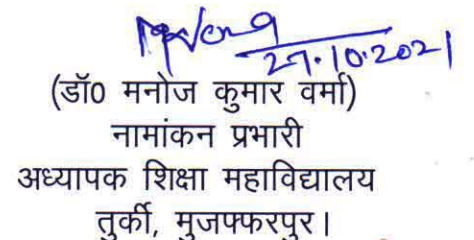 27.10.2021
(डॉ0 मनोज कुमार वर्मा)
नामांकन प्रभारी
अध्यापक शिक्षा महाविद्यालय
तुर्की, मुजफ्फरपुर।